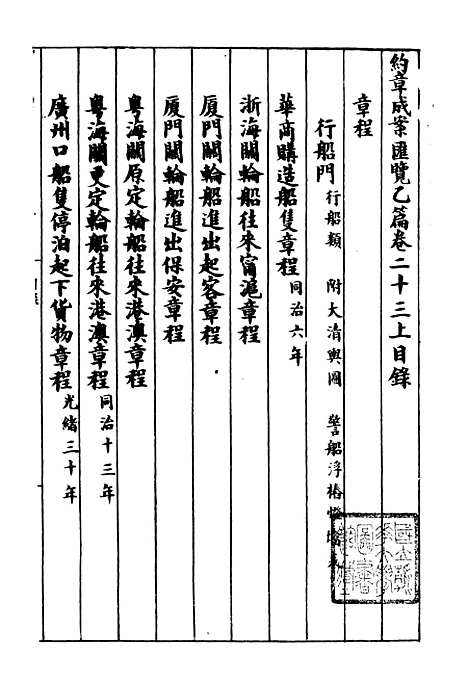 約章成案匯覽乙篇卷二十三上目錄
章程
行船門 行船類 附大清輿圖 警船浮樁燈塔表
華商購造船隻章程 同治六年
浙海關輪船往來甯滬章程
廈門關輪船進出起客章程
廈門關輪船進出保安章程
粵海關原定輪船往來港澳章程
粵海關更定輪船往來港澳章程 同治十三年
廣州口船隻停泊起下貨物章程 光緒三十年
目錄